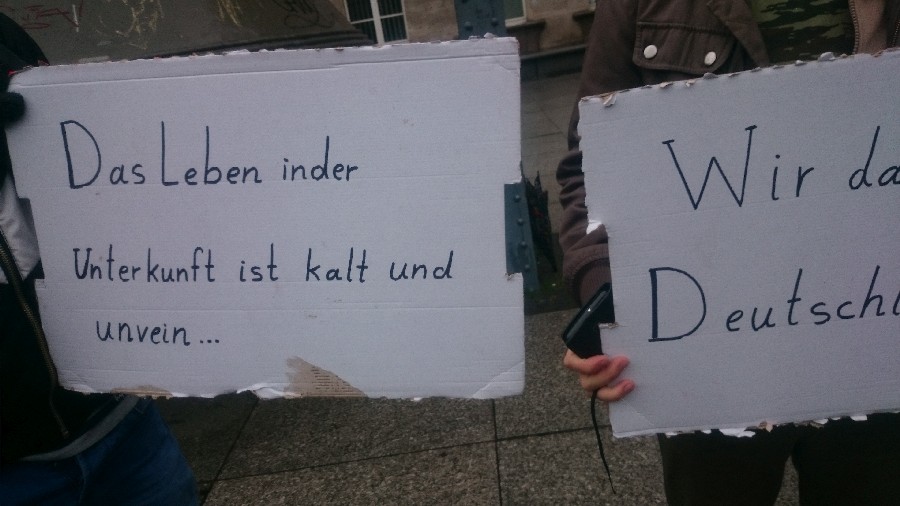 Das Leben inder
Unterkunft ist kalt und
unvein...
Wir da
Deutschl